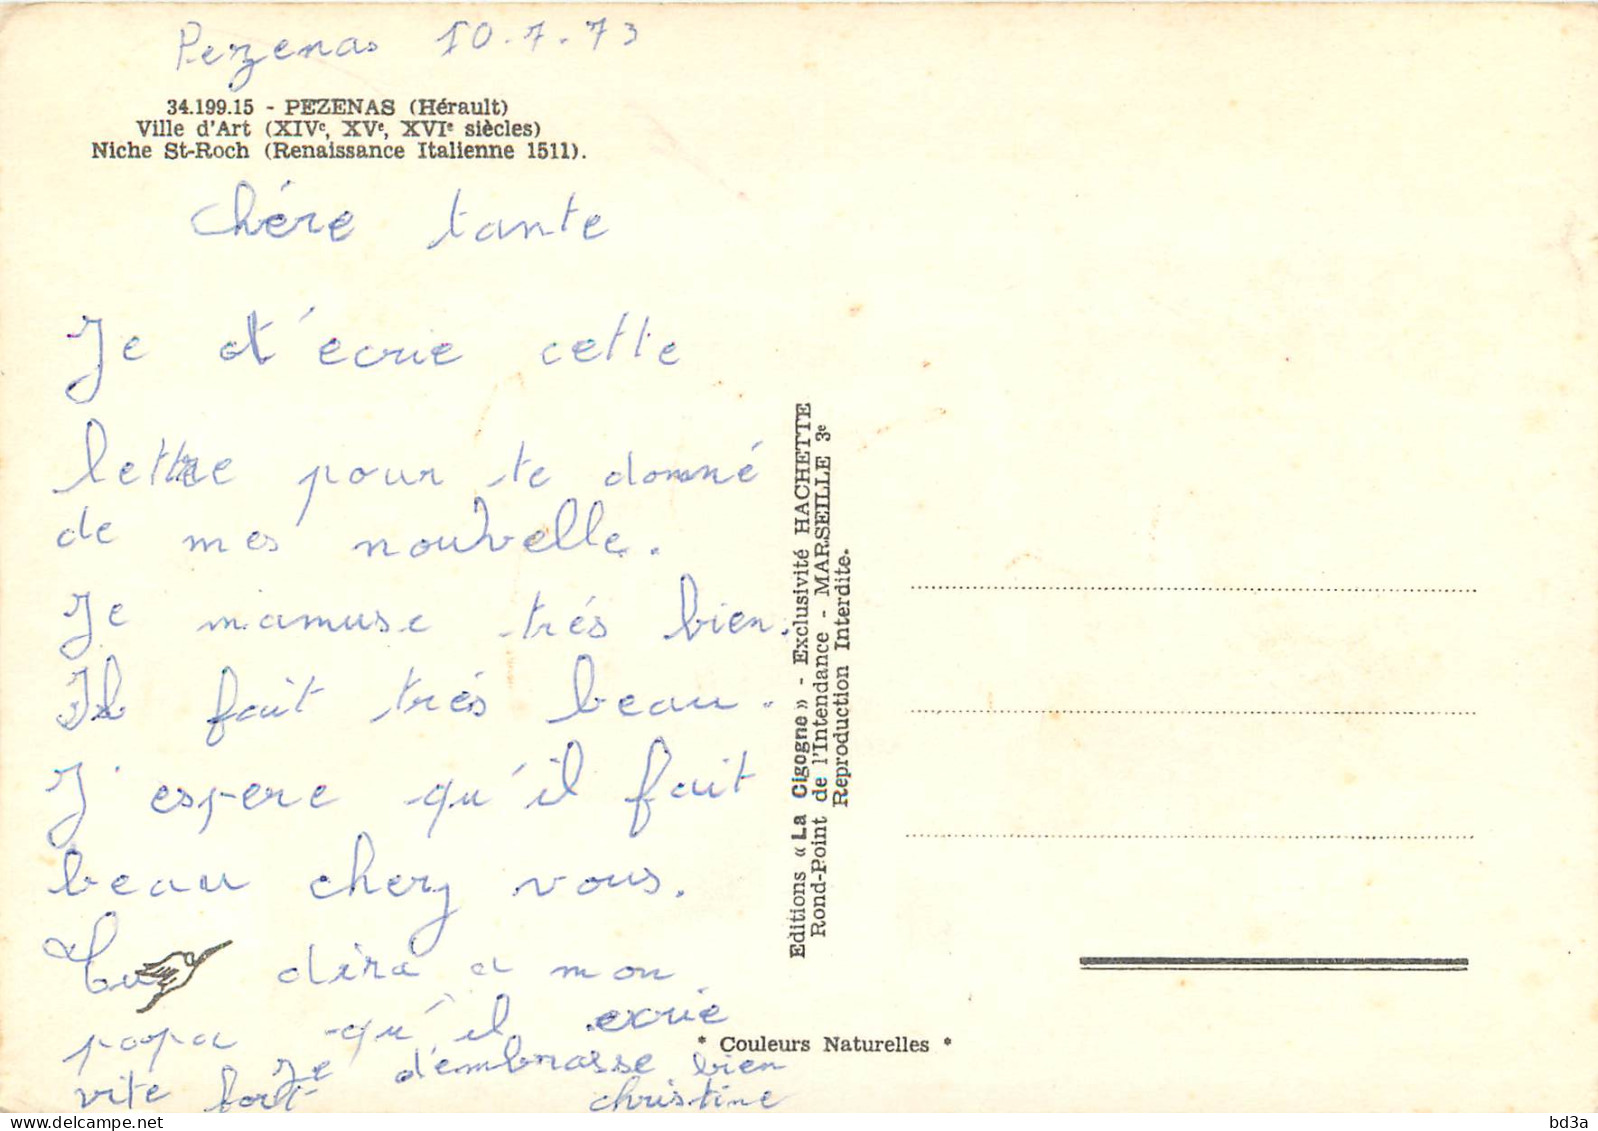 Pezenas 10.7.73
34.199.15 - PEZENAS (Hérault)
Ville d'Art (XIVe, XVe, XVIe siècles)
Niche St-Roch (Renaissance Italienne 1511).
Chére tante
Je t'ecrie cette
lettre pour te donné
de mes nouvelle.
Je mamuse trés bien.
Il fait trés beau.
J'espere qu'il fait
beau chez vous.
Tu dira a mon
papa qu'il ecrie
vite Je t'embrasse bien
fort christine
Editions « La Cigogne » - Exclusivité HACHETTE
Rond-Point de l'Intendance - MARSEILLE 3e
Reproduction Interdite.
* Couleurs Naturelles *
delcampe.net
bd3a